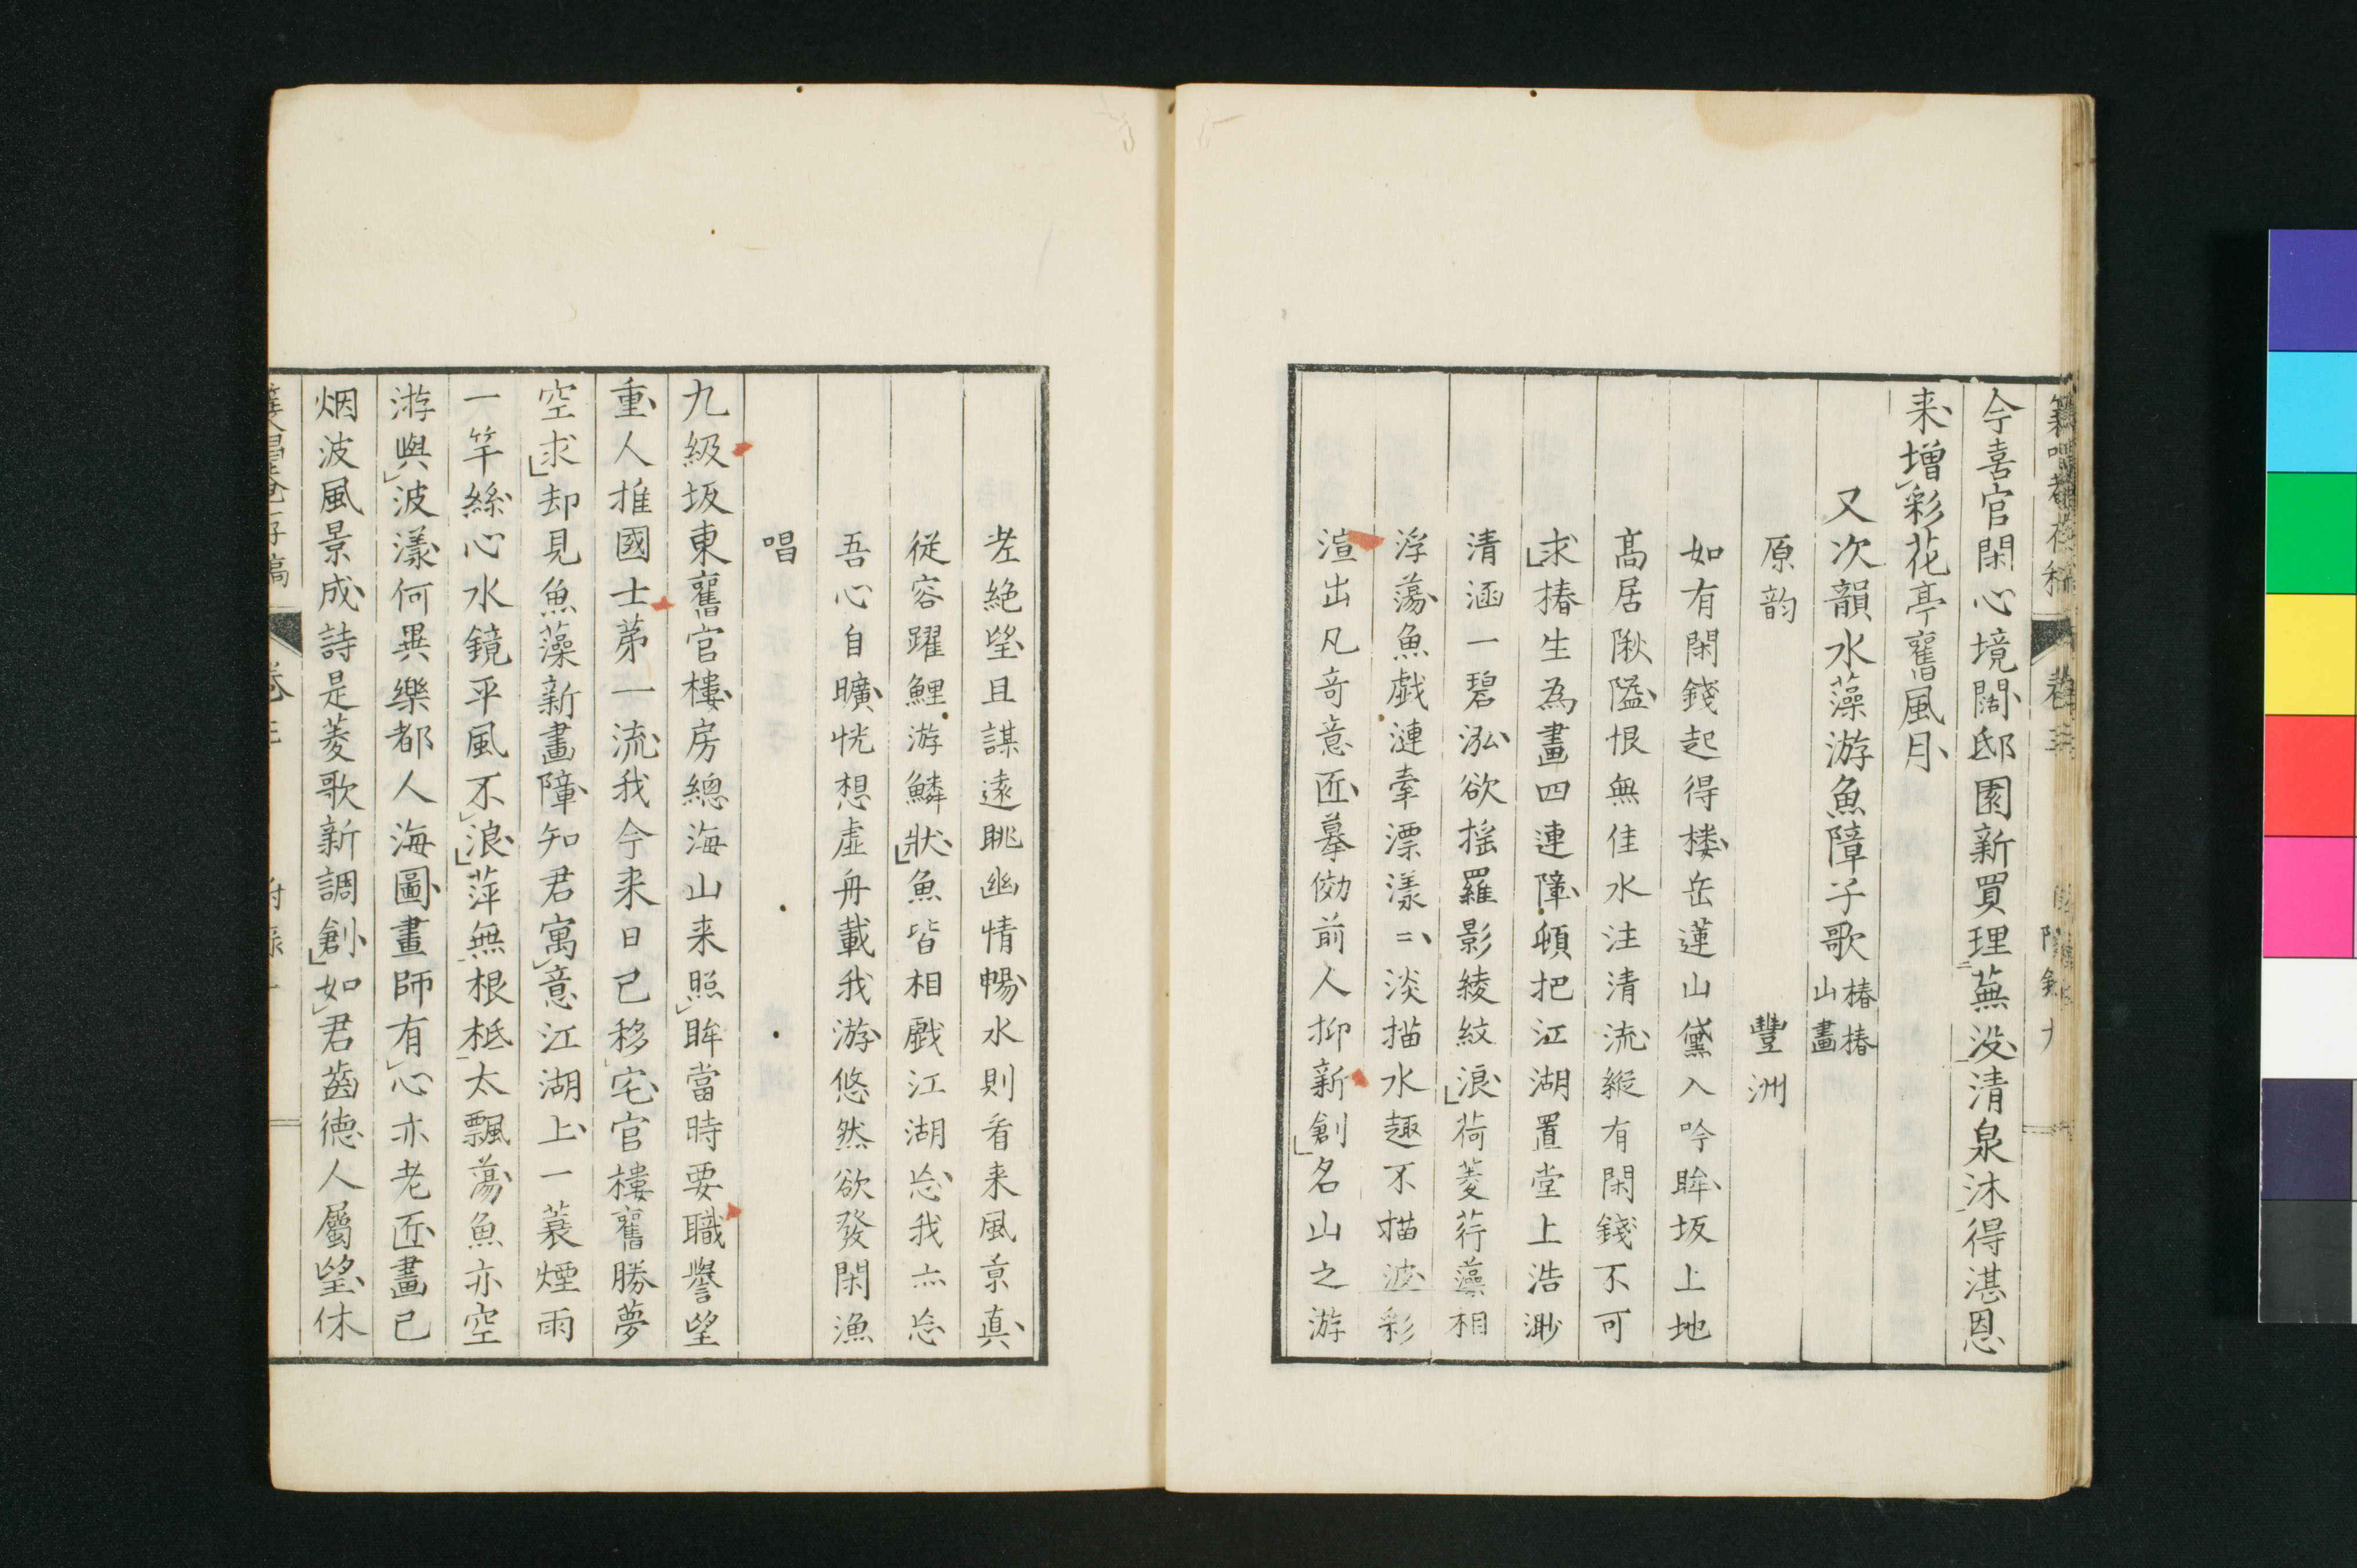 今喜官閑心境闊邸園新買理蕪没清泉沐得湛恩
来増彩花亭舊風月
又次韻水藻游魚障子歌椿椿山畫
原韵　豐洲
如有閑錢起得楼岳蓮山黛入吟眸坂上地
高居陬隘恨無佳水注清流縱有閑錢不可
求椿生為畫四連障頓把江湖置堂上浩渺
清涵一碧泓欲搖羅影綾紋浪荷菱荇藻相
浮蕩魚戯漣牽漂漾〻淡描水趣不描波彩
渲出凡竒意匠摹傚前人抑新創名山之游
老絶望且謀遠眺幽情暢水則看来風景真
従容躍鯉游鱗狀魚皆相戯江湖忘我亦忘
吾心自曠恍想虚舟載我游悠然欲發閑漁
唱
九級坂東舊官樓房總海山来照眸當時要職譽望
重人推國士第一流我今来日已移宅官樓舊勝夢
空求却見魚藻新畫障知君寓意江湖上一蓑煙雨
一竿絲心水鏡平風不浪萍無根柢太飄蕩魚亦空
游與波漾何異樂都人海圖畫師有心亦老匠畫已
烟波風景成詩是菱歌新調創如君齒徳人屬望休